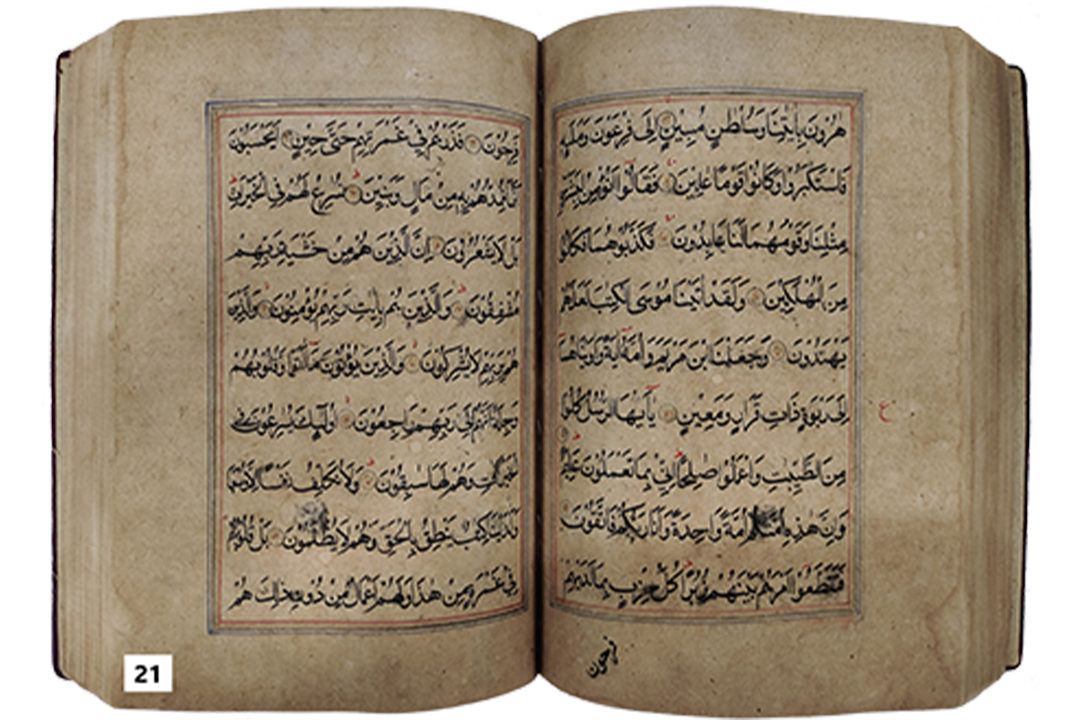 هرون بايتنا وسلطن مبين الى فرعون وملايه
فاستكبروا وكانوا قوما عالين فقالوا انؤمن لبشرين
مثلنا وقومهما لنا عابدون فكذبوهما فكانوا
من المهلكين ولقد اتينا موسى الكتب لعلهم
يهتدون وجعلنا ابن مريم وامه اية واوينهما
الى ربوة ذات قرار ومعين يايها الرسل كلوا
من الطيبت واعملوا صلحا اني بما تعملون عليم
وان هذه امتكم امة واحدة وانا ربكم فاتقون
فتقطعوا امرهم بينهم زبرا كل حزب بما لديهم
فرحون
فرحون فذرهم في غمرتهم حتى حين ايحسبون
انما نمدهم به من مال وبنين نسارع لهم في الخيرت
بل لا يشعرون ان الذين هم من خشية ربهم
مشفقون والذين هم بايت ربهم يؤمنون والذين
هم بربهم لا يشركون والذين يؤتون ما اتوا وقلوبهم
وجلة انهم الى ربهم راجعون اولئك يسرعون في
الخيرات وهم لها سبقون ولا نكلف نفسا الا وسعها
ولدينا كتب ينطق بالحق وهم لا يظلمون بل قلوبهم
في غمرة من هذا ولهم اعمال من دون ذلك هم
ع
21